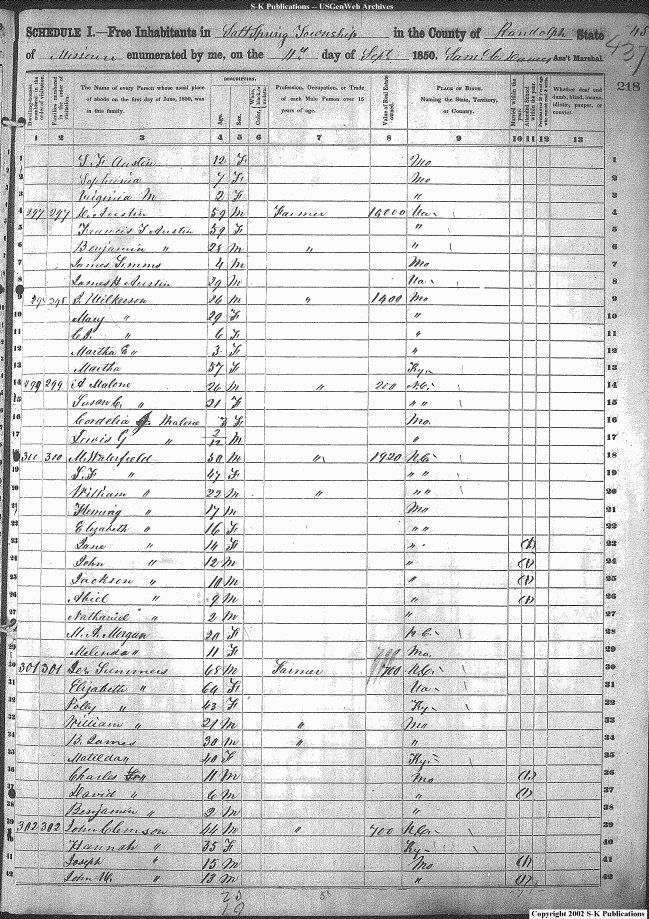 S-K Publications -- USGenWeb Archives
SCHEDULE I.—Free Inhabitants in Salt Spring Township in the County of Randolph State 48
of Missouri enumerated by me, on the day of Sept 1850. Ass't Marshal. 437
218
Dwelling-houses numbered in the order of visitation.
Families numbered in the order of visitation.
The Name of every Person whose usual place of abode on the first day of June, 1850, was in this family.
DESCRIPTION.
Age.
Sex.
Profession, Occupation, or Trade of each Male Person over 15 years of age.
Value of Real Estate owned.
PLACE OF BIRTH.
Naming the State, Territory, or Country.
Married within the year.
Attended School within the year.
Whether deaf and dumb, blind, insane, idiotic, pauper, or convict.
1 2 3 4 5 6 7 8 9 10 11 12 13
1 S. F. Austin 12 F Mo 1
2 Sophronia 7 F Mo 2
3 Virginia M 2 F " 3
4 297 297 Austin 59 M Farmer Va 4
5 Francis T Austin 59 F " 5
6 Benjamin " 28 M " " 6
7 James Simms 4 M Mo 7
8 James H Austin 39 M Va 8
9 298 Wilkerson 36 M " 1400 Mo 9
10 Mary " 29 F " 10
11 " 6 F " 11
12 Martha E " 3 F " 12
13 Martha 57 F Ky 13
14 299 299 Malone 26 M " 200 N.C. 14
15 Susan C. " 21 F " " 15
16 Cordelia Malone 3 F Mo. 16
17 Lewis G " 2/12 M " 17
18 310 M. Waterfield 50 M " 1920 N.C. 18
19 " 47 F " " 19
20 William " 22 M " " " 20
21 Fleming " 17 M Mo 21
22 Elizabeth " 16 F " " 22
23 Jane " 14 F " (1) 23
24 John " 12 M " (1) 24
25 Jackson " 10 M " (1) 25
26 Abiel " 9 M " (1) 26
27 Nathaniel " 2 M " 27
28 M. A. Morgan 20 F N.C. 28
29 Melinda " 11 F Mo. 29
30 301 301 Summers 68 M Farmer 700 N.C. 30
31 Elizabeth " 64 F Va 31
32 Polly " 43 F Ky 32
33 William " 21 M " Mo 33
34 B. James 30 M " " 34
35 Matilda " 40 F Ky 35
36 Charles " 11 M Mo (1) 36
37 David " 6 M " (1) 37
38 Benjamin " 2 M " 38
39 302 302 John Clemson 44 M " 700 N.C. 39
40 Hannah " 35 F Ky 40
41 Joseph " 15 M Mo (1) 41
42 John W. " 13 M " (1) 42
23
19
Copyright 2002 S-K Publications